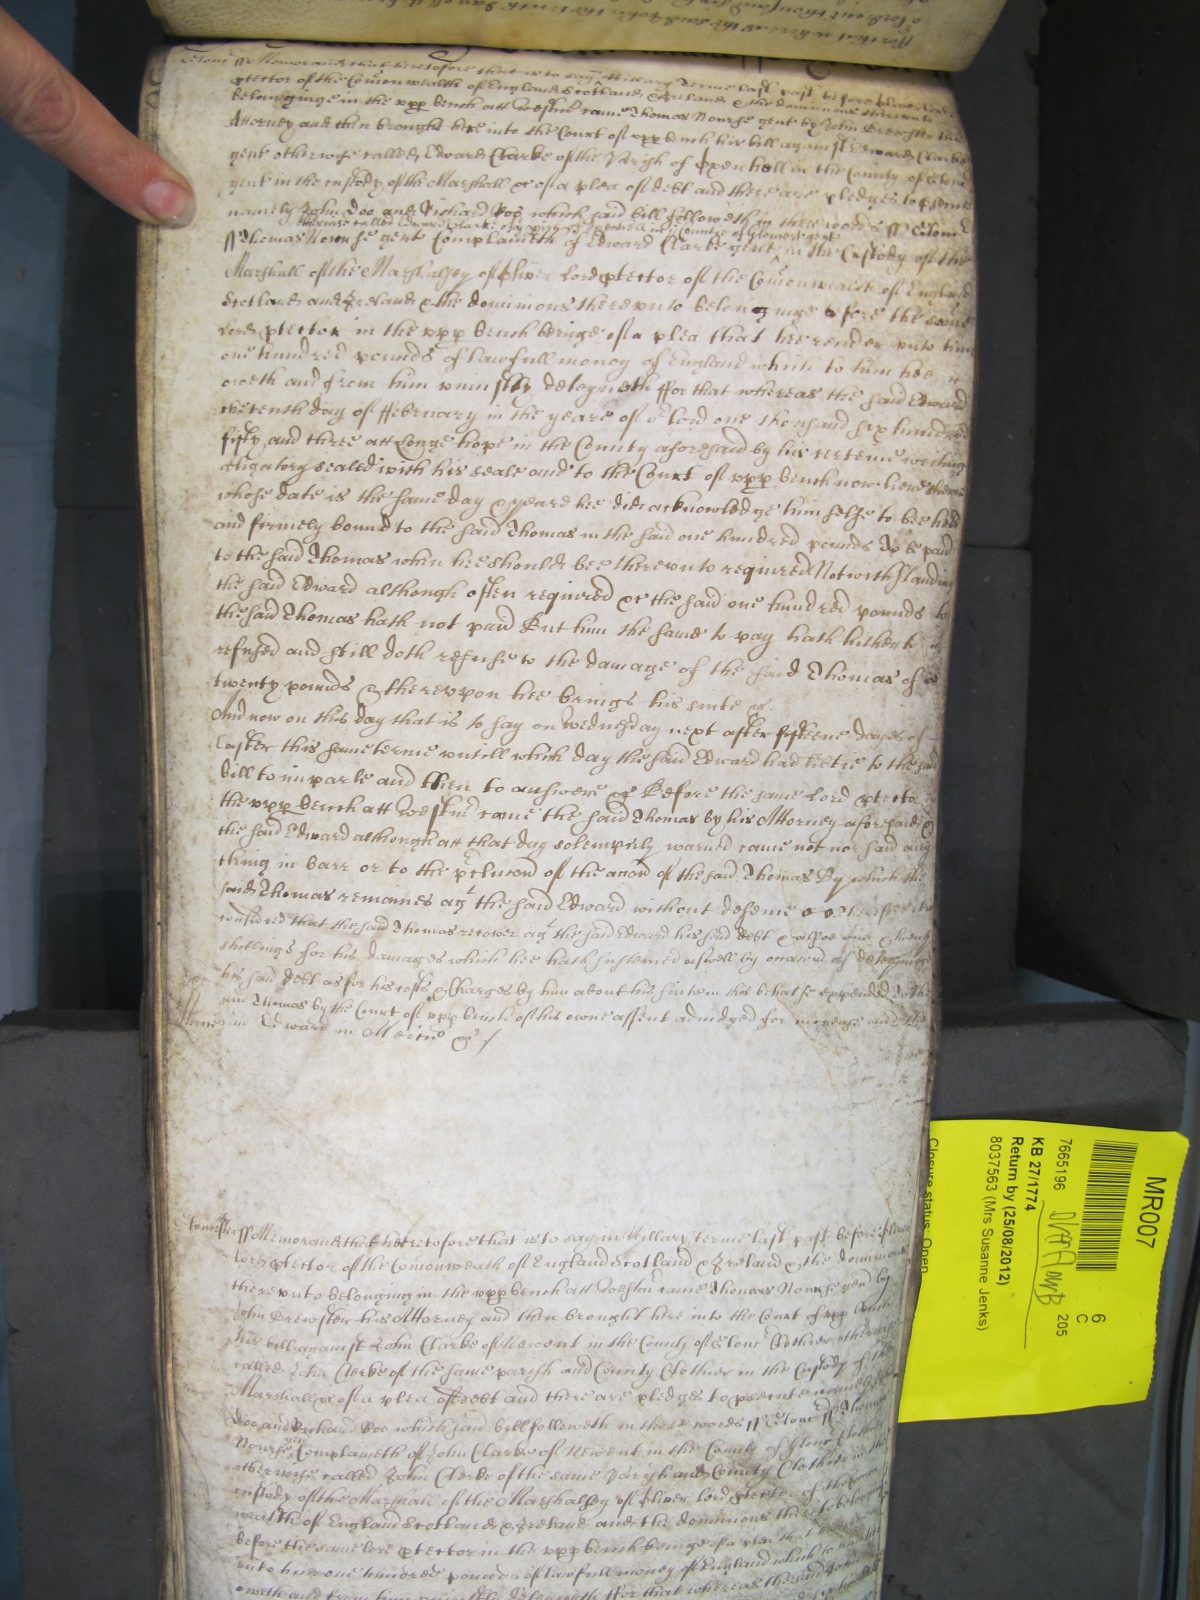 Glouc ss Memorand that heretofore that is to say att Hillary Terme last past before Oliver Lord
ptector of the Comonwealth of England Scotland & Ireland & the dominions thereunto
belonginge in the upp bench att Westmr came Thomas Nourse gent by John Brewster his
Attorney and then brought here into the Court of upp bench his bill against Edward Clarke
gent otherwise called Edward Clarke of the Parish of Oxenhall in the County of Glouc
gent in the custody of the Marshall &c of a plea of debt and there are pledges to psecute
namely John Doo and Richard Roo which said bill followeth in these words ss Glouc
otherwise called Edward Clarke of the Parish of Oxenhall in the Countie of Glouc gent
ss Thomas Nourse gent Complaineth of Edward Clarke gent in the Custody of the
Marshall of the Marshalsey of Oliver Lord ptector of the Comonwealth of England
Scotland and Ireland & the dominions thereunto belonginge before the same
Lord ptector in the upp bench beinge of a plea that hee render unto him
one hundred pounds of lawfull money of England which to him hee
oweth and from him uniustly deteyneth ffor that whereas the said Edward
the tenth day of ffebruary in the yeare of or Lord one thousand six hundred
fifty and three att Longehope in the County aforesaid by his certeine writing
obligatory sealed with his seale and to the Court of upp bench now here shewn
whose date is the same day & yeare hee did acknowledge him selfe to bee held
and firmely bound to the said Thomas in the said one hundred pounds To be paid
to the said Thomas when hee should bee thereunto required Notwithstanding
the said Edward although often required &c the said one hundred pounds to
the said Thomas hath not paid But him the same to pay hath hitherto
refused and still doth refuse to the damage of the said Thomas of
twenty pounds & thereupon hee brings his suite &c
And now on this day that is to say on Wednesday next after fifteene dayes of
Easter this same terme untill which day the said Edward had licence to the said
bill to imparle and then to answere &c Before the same Lord ptector
the upp bench att Westmr came the said Thomas by his Attorney aforesaid &
the said Edward although att that day solempnly warned came not nor said any
thing in barr or to the pclusion of the accon of the said Thomas By which the
said Thomas remaines agt the said Edward without defence &c Therefore it is
considred that the said Thomas recover agt the said Edward his said debt & alsoe one & twenty
shillings for his damages which hee hath susteined aswell by occasion of deteyninge
his said debt as for his costs & Charges by him about his suite in this behalfe expended to the
said Thomas by the Court of upp bench of his owne assent adiudged for increase and the
said Edward in Mercie &c /
Glouc ss Memorand that heretofore that is to say in Hillary terme last past before Oliver
Lord ptector of the Comonwealth of England Scotland & Ireland & the dominions
thereunto belonging in the upp bench att Westmr came Thomas Nourse gent by
John Brewster his Attorney and then brought here into the Court of upp bench
his bill against John Clarke of Newent in the County of Glouc Clothier otherwise
called John Clarke of the same parish and County Clothier in the Custody of the
Marshall &c of a plea of debt and there are pledges to psecute namely John
Doo and Richard Roo which said bill followeth in these words ss Glouc ss Thomas
Nourse gent Complaineth of John Clarke of Newent in the County of Glouc Clothier
otherwise called John Clarke of the same Parish and County Clothier in the
custody of the Marshall of the Marshalsey of Oliver Lord ptector of the Comon
wealth of England Scotland & Ireland and the dominions thereto belonging
before the same Lord ptector in the upp bench beinge of a plea that hee render
unto him one hundred pounds of lawfull money of England which to him hee
oweth and from him uniustly deteyneth ffor that whereas the said John
MR007
6
C
205
7665196
KB 27/1774
Return by (25/08/2012)
8037563 (Mrs Susanne Jenks)
Closure status: Open